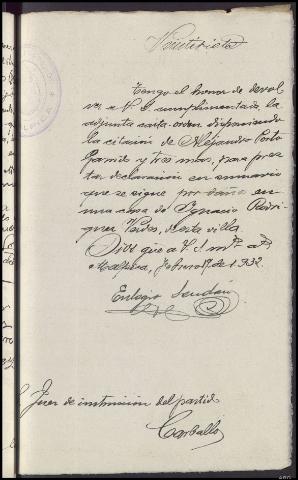 Veintisiete
Tengo el honor de devol
ver a V. S. cumplimentada, la
adjunta carta-orden disponiendo
la citación de Alejandro Pombo
Garrido y tres más, para pres
tar declaración en sumario
que se sigue por daños en
una casa de Ignacio Rodrí
guez Vardes, de esta villa.
Dios gue a V. S. ms. as.
Malpica, Febrero 17 de 1.932.
Eulogio
Juez de instrucción del partido
Carballo